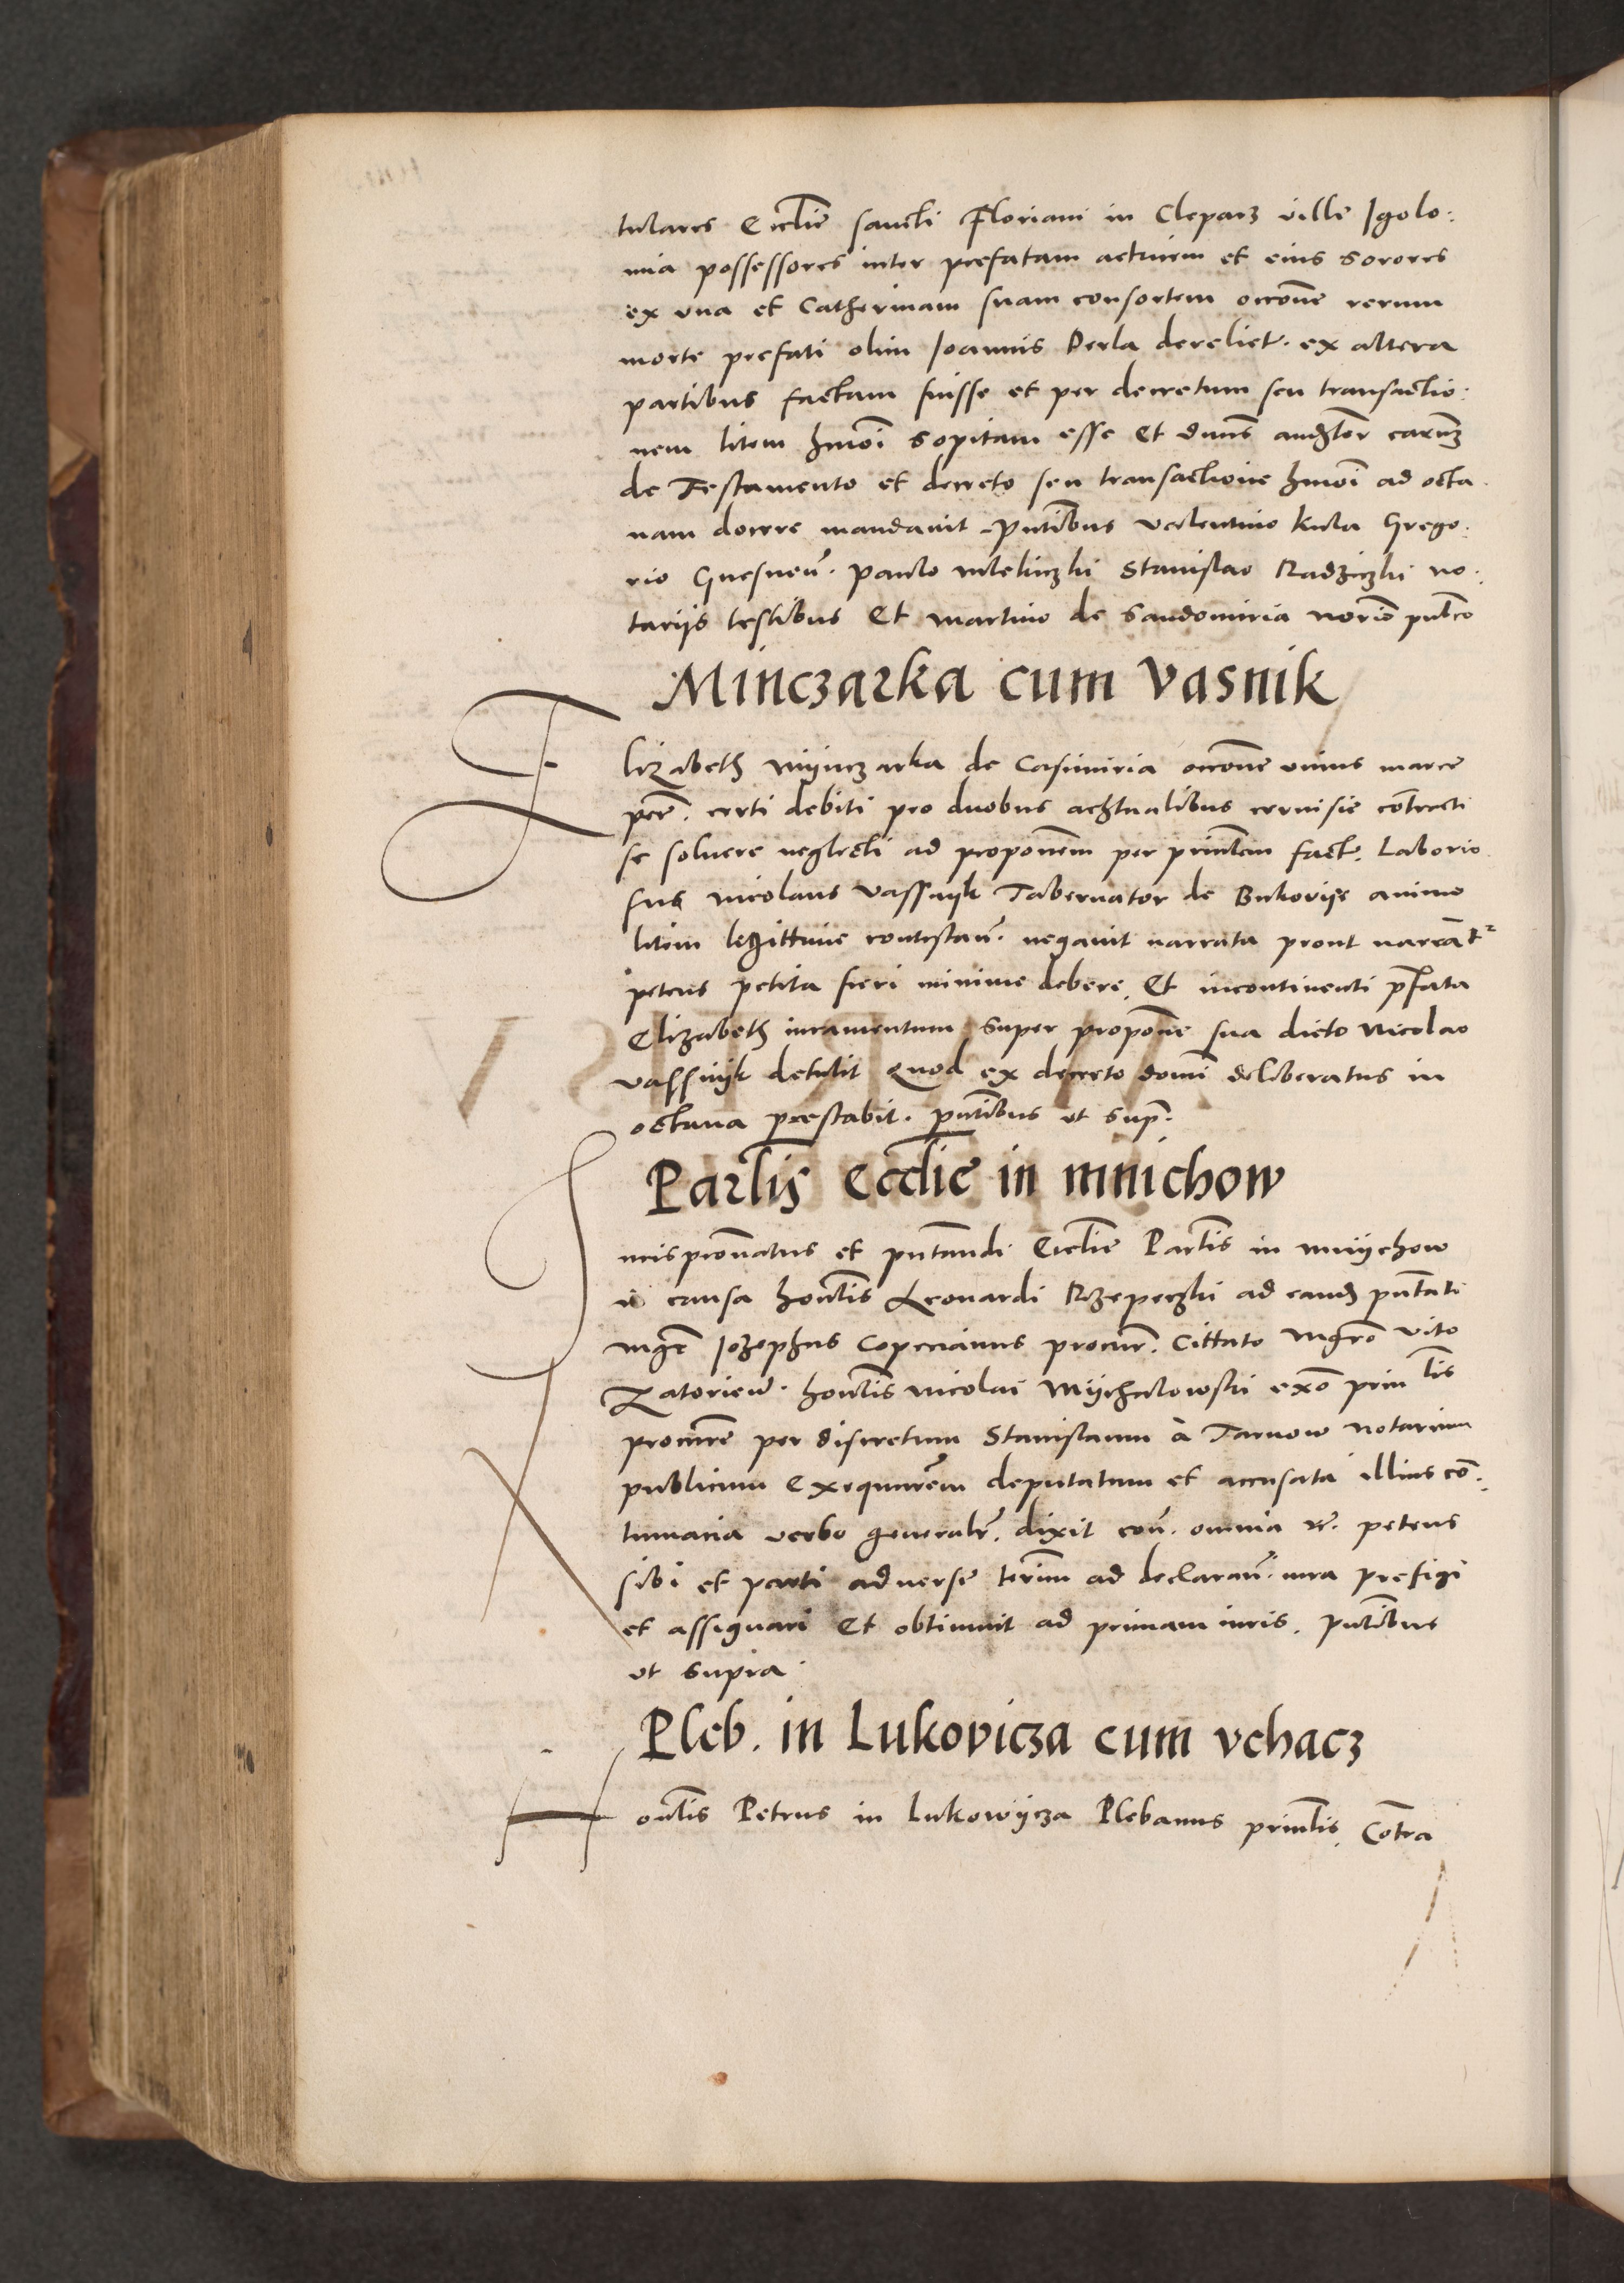 tulares Ecclie sancti Floriani in Cleparz ville Igolo:
mia possessores inter prefatam actricem et eius sorores
ex vna et Catherinam suam consortem occone rerum
morte prefati olim Ioannis Perla derelict. ex altera
partibus factam fuisse et per decretum seu transactio:
nem litem hmoi sopitam esse Et dnus
de Testamento et decreto seu transactione hmoi ad octa.
uam docere mandauit. Pntibus valentino kula Grego:
rio Gnesnen. paulo Stanislao Radziczki no:
tarijs testibus Et martino de Sandomiria norio publco
Minczarka cum Vasnik
Elizabeth myinczarka de Casimiria occone vnius marce
pec. certi debiti pro duobus achtualibus ceruisie contracti
se soluere neglecti ad proponem per prinlem fact. Laborio
sus nicolaus vassnyk Tabernator de Bukovije animo
litem legittime contestan. negauit narrata prout narrat
petens petita fieri minime debere. Et incontinenti prefata
Elizabeth iuramentum super propone sua dicto Nicolao
vassnyk detulit quod ex decreto domi deliberatus in
octaua prestabit. pntibus vt sup.
Parlis Ecclie in mnichow
Iurispronatus et pntandi Ecclie Parlis in mnijchow
in causa honlis Leonardi Rzepeczki ad eand pntati
mgr Iozephus Copecianus procur. Cittato mgro vito
Zatorien. honlis nicolai Mijchalowski exo prin lis
procure per discretum Stanislaum a Tarnow notarium
publicum Exequurem deputatum et accusata illius con.
tumacia verbo generalr. dixit con. omnia rc. petens
sibi et parti aduerse termn ad declaran. iura prefigi
et assignari Et obtinuit ad primam iuris. Pntibus
vt supra.
Pleb. in Lukovicza cum vchacz
Honlis Petrus in Lukowijcza Plebanus prinlis. Contra